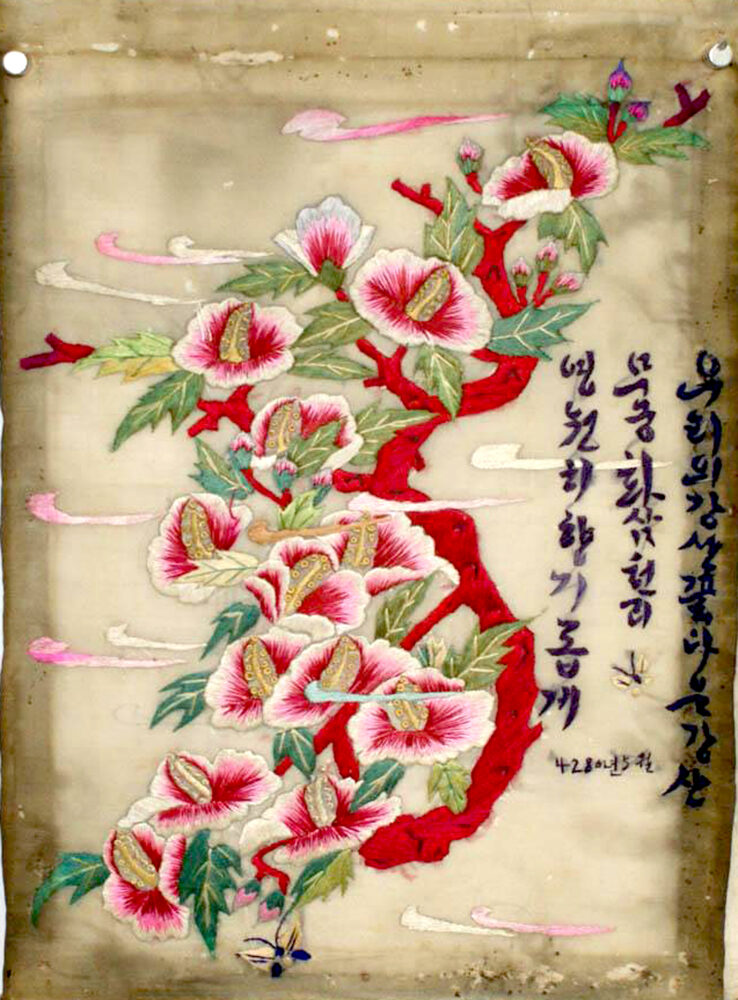 우리의강산꽃다운강산
무궁화삼천리
영원히향기롭게
4280년5월